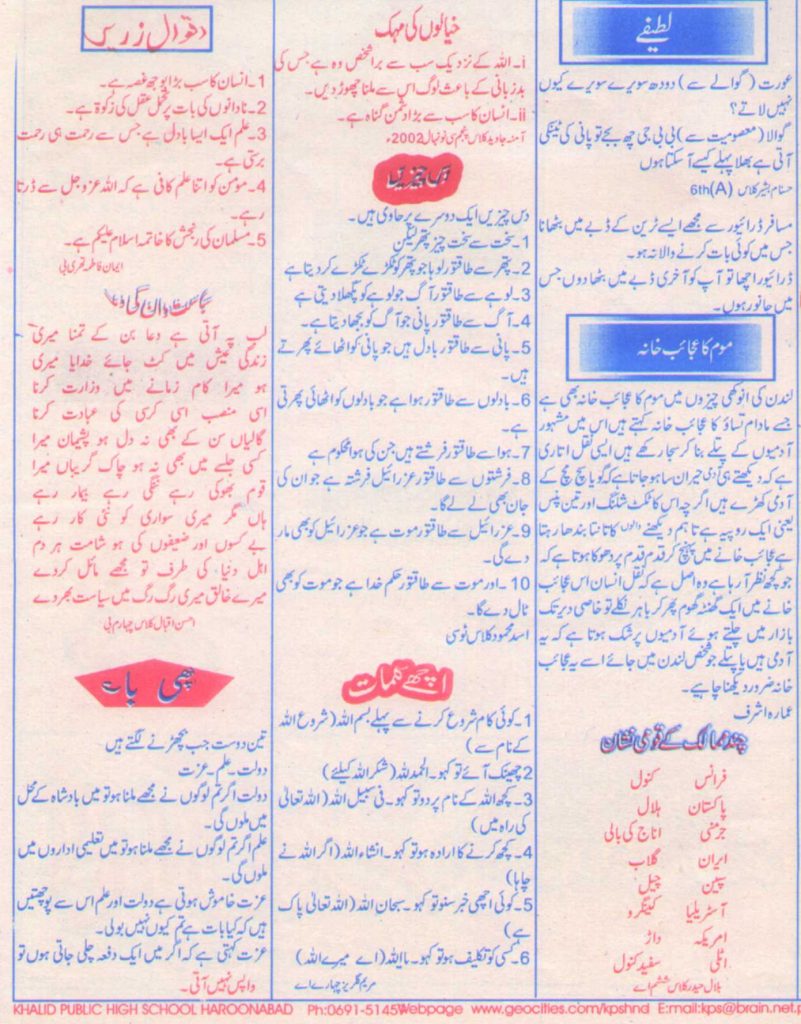 لطیفے
عورت (گوالے سے) دودھ سویرے سویرے کیوں
نہیں لاتے؟
گوالا (معصومیت سے) بی بی جی چھ بجے تو پانی کی ٹینکی
آتی ہے بھلا پہلے کیسے آ سکتا ہوں
حسنام بشیر کلاس 6th(A)
مسافر ڈرائیور سے مجھے ایسے ٹرین کے ڈبے میں بٹھانا
جس میں کوئی بات کرنے والا نہ ہو۔
ڈرائیور اچھا تو آپ کو آخری ڈبے میں بٹھا دوں جس
میں جانور ہوں۔
موم کا عجائب خانہ
لندن کی انوکھی چیزوں میں موم کا عجائب خانہ بھی ہے
جسے مادام تساؤ کا عجائب خانہ کہتے ہیں اس میں مشہور
آدمیوں کے پتلے بنا کر سجا رکھے ہیں ایسی نقل اتاری
ہے کہ دیکھتے ہی آدمی حیران سا ہو جاتا ہے کہ گویا سچ مچ کے
آدمی کھڑے ہیں اگرچہ اس کا ٹکٹ شلنگ اور تین پنس
یعنی ایک روپیہ ہے تاہم دیکھنے والوں کا تانتا بندھا رہتا
ہے عجائب خانے میں پہنچ کر قدم قدم پر دھوکا ہوتا ہے کہ
جو کچھ نظر آ رہا ہے وہ اصل ہے کہ نقل انسان اس عجائب
خانے میں ایک گھنٹہ گھوم پھر کر باہر نکلے تو خاصی دیر تک
بازار میں چلتے ہوئے آدمیوں پر شک ہوتا ہے کہ یہ
آدمی ہیں یا پتلے جو شخص لندن میں جائے اسے یہ عجائب
خانہ ضرور دیکھنا چاہیے۔
عمارہ اشرف
چند ممالک کے قومی نشان
فرانس کنول
پاکستان ہلال
جرمنی اناج کی بالی
ایران گلاب
سپین چیل
آسٹریلیا کینگرو
امریکہ
اٹلی سفید کنول
بلال حیدر کلاس ششم اے
خیالوں کی مہک
i۔ اللہ کے نزدیک سب سے برا شخص وہ ہے جس کی
بدزبانی کے باعث لوگ اس سے ملنا چھوڑ دیں۔
ii۔ انسان کا سب سے بڑا دشمن گناہ ہے۔
آمنہ جاوید کلاس پنجم سی نونہال 2002ء
دس چیزیں
دس چیزیں ایک دوسرے پر حاوی ہیں۔
1۔ سخت سے سخت چیز پتھر لیکن
2۔ پتھر سے طاقتور لوہا جو پتھر کو ٹکڑے ٹکڑے کر دیتا ہے
3۔ لوہے سے طاقتور آگ جو لوہے کو پگھلا دیتی ہے
4۔ آگ سے طاقتور پانی جو آگ کو بجھا دیتا ہے۔
5۔ پانی سے طاقتور بادل ہیں جو پانی کو اٹھائے پھرتے
ہیں۔
6۔ بادلوں سے طاقتور ہوا ہے جو بادلوں کو اٹھائی پھرتی
ہے۔
7۔ ہوا سے طاقتور فرشتے ہیں جن کی ہوا محکوم ہے
8۔ فرشتوں سے طاقتور عزرائیل فرشتہ ہے جو ان کی
جان بھی لے لے گا۔
9۔ عزرائیل سے طاقتور موت ہے جو عزرائیل کو بھی مار
دے گی۔
10۔ اور موت سے طاقتور حکم خدا ہے جو موت کو بھی
ٹال دے گا۔
اسد محمود کلاس نو سی
اچھے کلمات
1۔ کوئی کام شروع کرنے سے پہلے بسم اللہ (شروع اللہ
کے نام سے)
2 چھینک آئے تو کہو۔ الحمدللہ (شکر اللہ کیلئے)
3۔ کچھ اللہ کے نام پر دو تو کہو۔ فی سبیل اللہ (اللہ تعالٰی
کی راہ میں)
4۔ کچھ کرنے کا ارادہ ہو تو کہو۔ انشاء اللہ (اگر اللہ نے
چاہا)
5۔ کوئی اچھی خبر سنو تو کہو۔ سبحان اللہ (اللہ تعالٰی پاک
ہے)
6۔ کسی کو تکلیف ہو تو کہو۔ یا اللہ (اے میرے اللہ)
مریم گلریز چہارم اے
اقوال زریں
1۔ انسان کا سب بڑا بوجھ غصہ ہے۔
2۔ نادانوں کی بات پر تحمل عقل کی زکوۃ ہے۔
3۔ علم ایک ایسا بادل ہے جس سے رحمت ہی رحمت
برستی ہے۔
4۔ مؤمن کو اتنا علم کافی ہے کہ اللہ عزوجل سے ڈرتا
رہے۔
5۔ مسلمان کی رنجش کا خاتمہ اسلام علیکم ہے۔
ایمان فاطمہ تھری بی
سیاست دان کی دعا
لب پہ آتی ہے دعا بن کے تمنا میری
زندگی عیش میں کٹ جائے خدایا میری
ہو میرا کام زمانے میں وزارت کرنا
اسی منصب اسی کرسی کی عبادت کرنا
گالیاں سن کے بھی نہ دل ہو پشیمان میرا
کسی جلسے میں بھی نہ ہو چاک گریباں میرا
قوم بھوکی رہے ننگی رہے بیمار رہے
ہاں مگر میری سواری کو نئی کار رہے
بے کسوں اور ضعیفوں کی ہو شامت ہر دم
اہل دنیا کی طرف تو مجھے مائل کر دے
میرے خالق میری رگ رگ میں سیاست بھر دے
احسن اقبال کلاس چہارم بی
اچھی بات
تین دوست جب بچھڑنے لگتے ہیں
دولت۔ علم۔ عزت
دولت اگر تم لوگوں نے مجھے ملنا ہو تو میں بادشاہ کے محل
میں ملوں گی۔
علم اگر تم لوگوں نے مجھے ملنا ہو تو میں تعلیمی اداروں میں
ملوں گی۔
عزت خاموش ہوتی ہے دولت اور علم اس سے پوچھتیں
ہیں کہ کیا بات ہے تم کیوں نہیں بولی۔
عزت کہتی ہے کہ اگر میں ایک دفعہ چلی جاتی ہوں تو
واپس نہیں آتی۔
KHALID PUBLIC HIGH SCHOOL HAROONABAD Ph:0691-51459 Webpage www.geocities.com/kpshnd E:mail:kps@brain.net.p